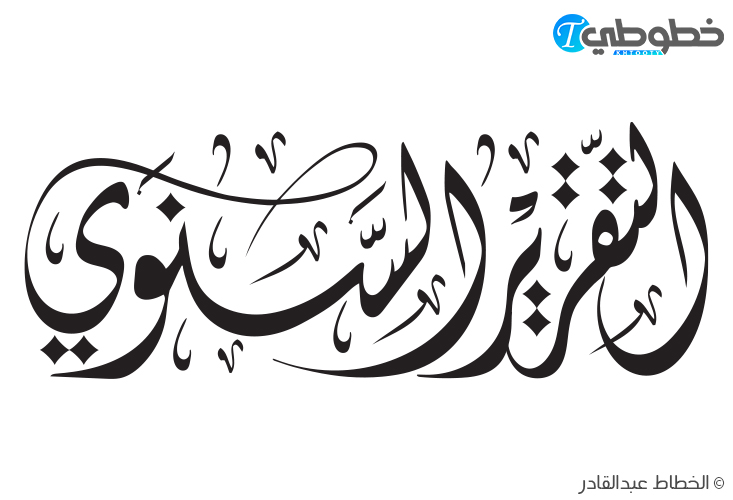 خطوطي
XHTOOTY
التقرير السنوي
© الخطاط عبدالقادر